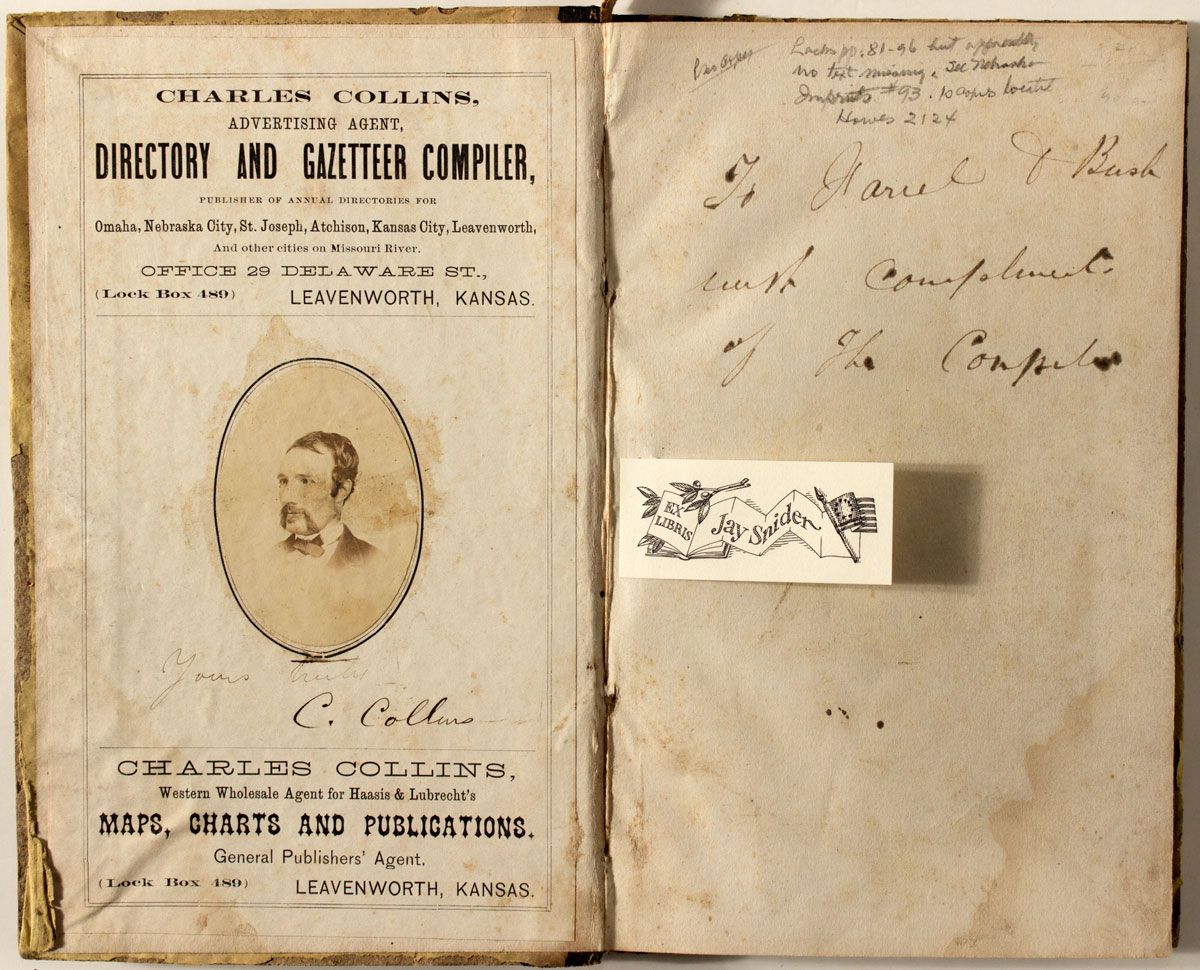 CHARLES COLLINS,
ADVERTISING AGENT,
DIRECTORY AND GAZETTEER COMPILER,
PUBLISHER OF ANNUAL DIRECTORIES FOR
Omaha, Nebraska City, St. Joseph, Atchison, Kansas City, Leavenworth,
And other cities on Missouri River.
OFFICE 29 DELAWARE ST.,
(Lock Box 489) LEAVENWORTH, KANSAS.
Yours truly
C. Collins
CHARLES COLLINS,
Western Wholesale Agent for Haasis & Lubrecht's
MAPS, CHARTS AND PUBLICATIONS.
General Publishers' Agent.
(Lock Box 489) LEAVENWORTH, KANSAS.
Lacks pp. 81-96 but apparently
no text missing. See Nebraska
Imprints #93. 10 copies located
Howes 2124
To D Bush
with compliments
of The Compiler
EX LIBRIS
Jay Snider